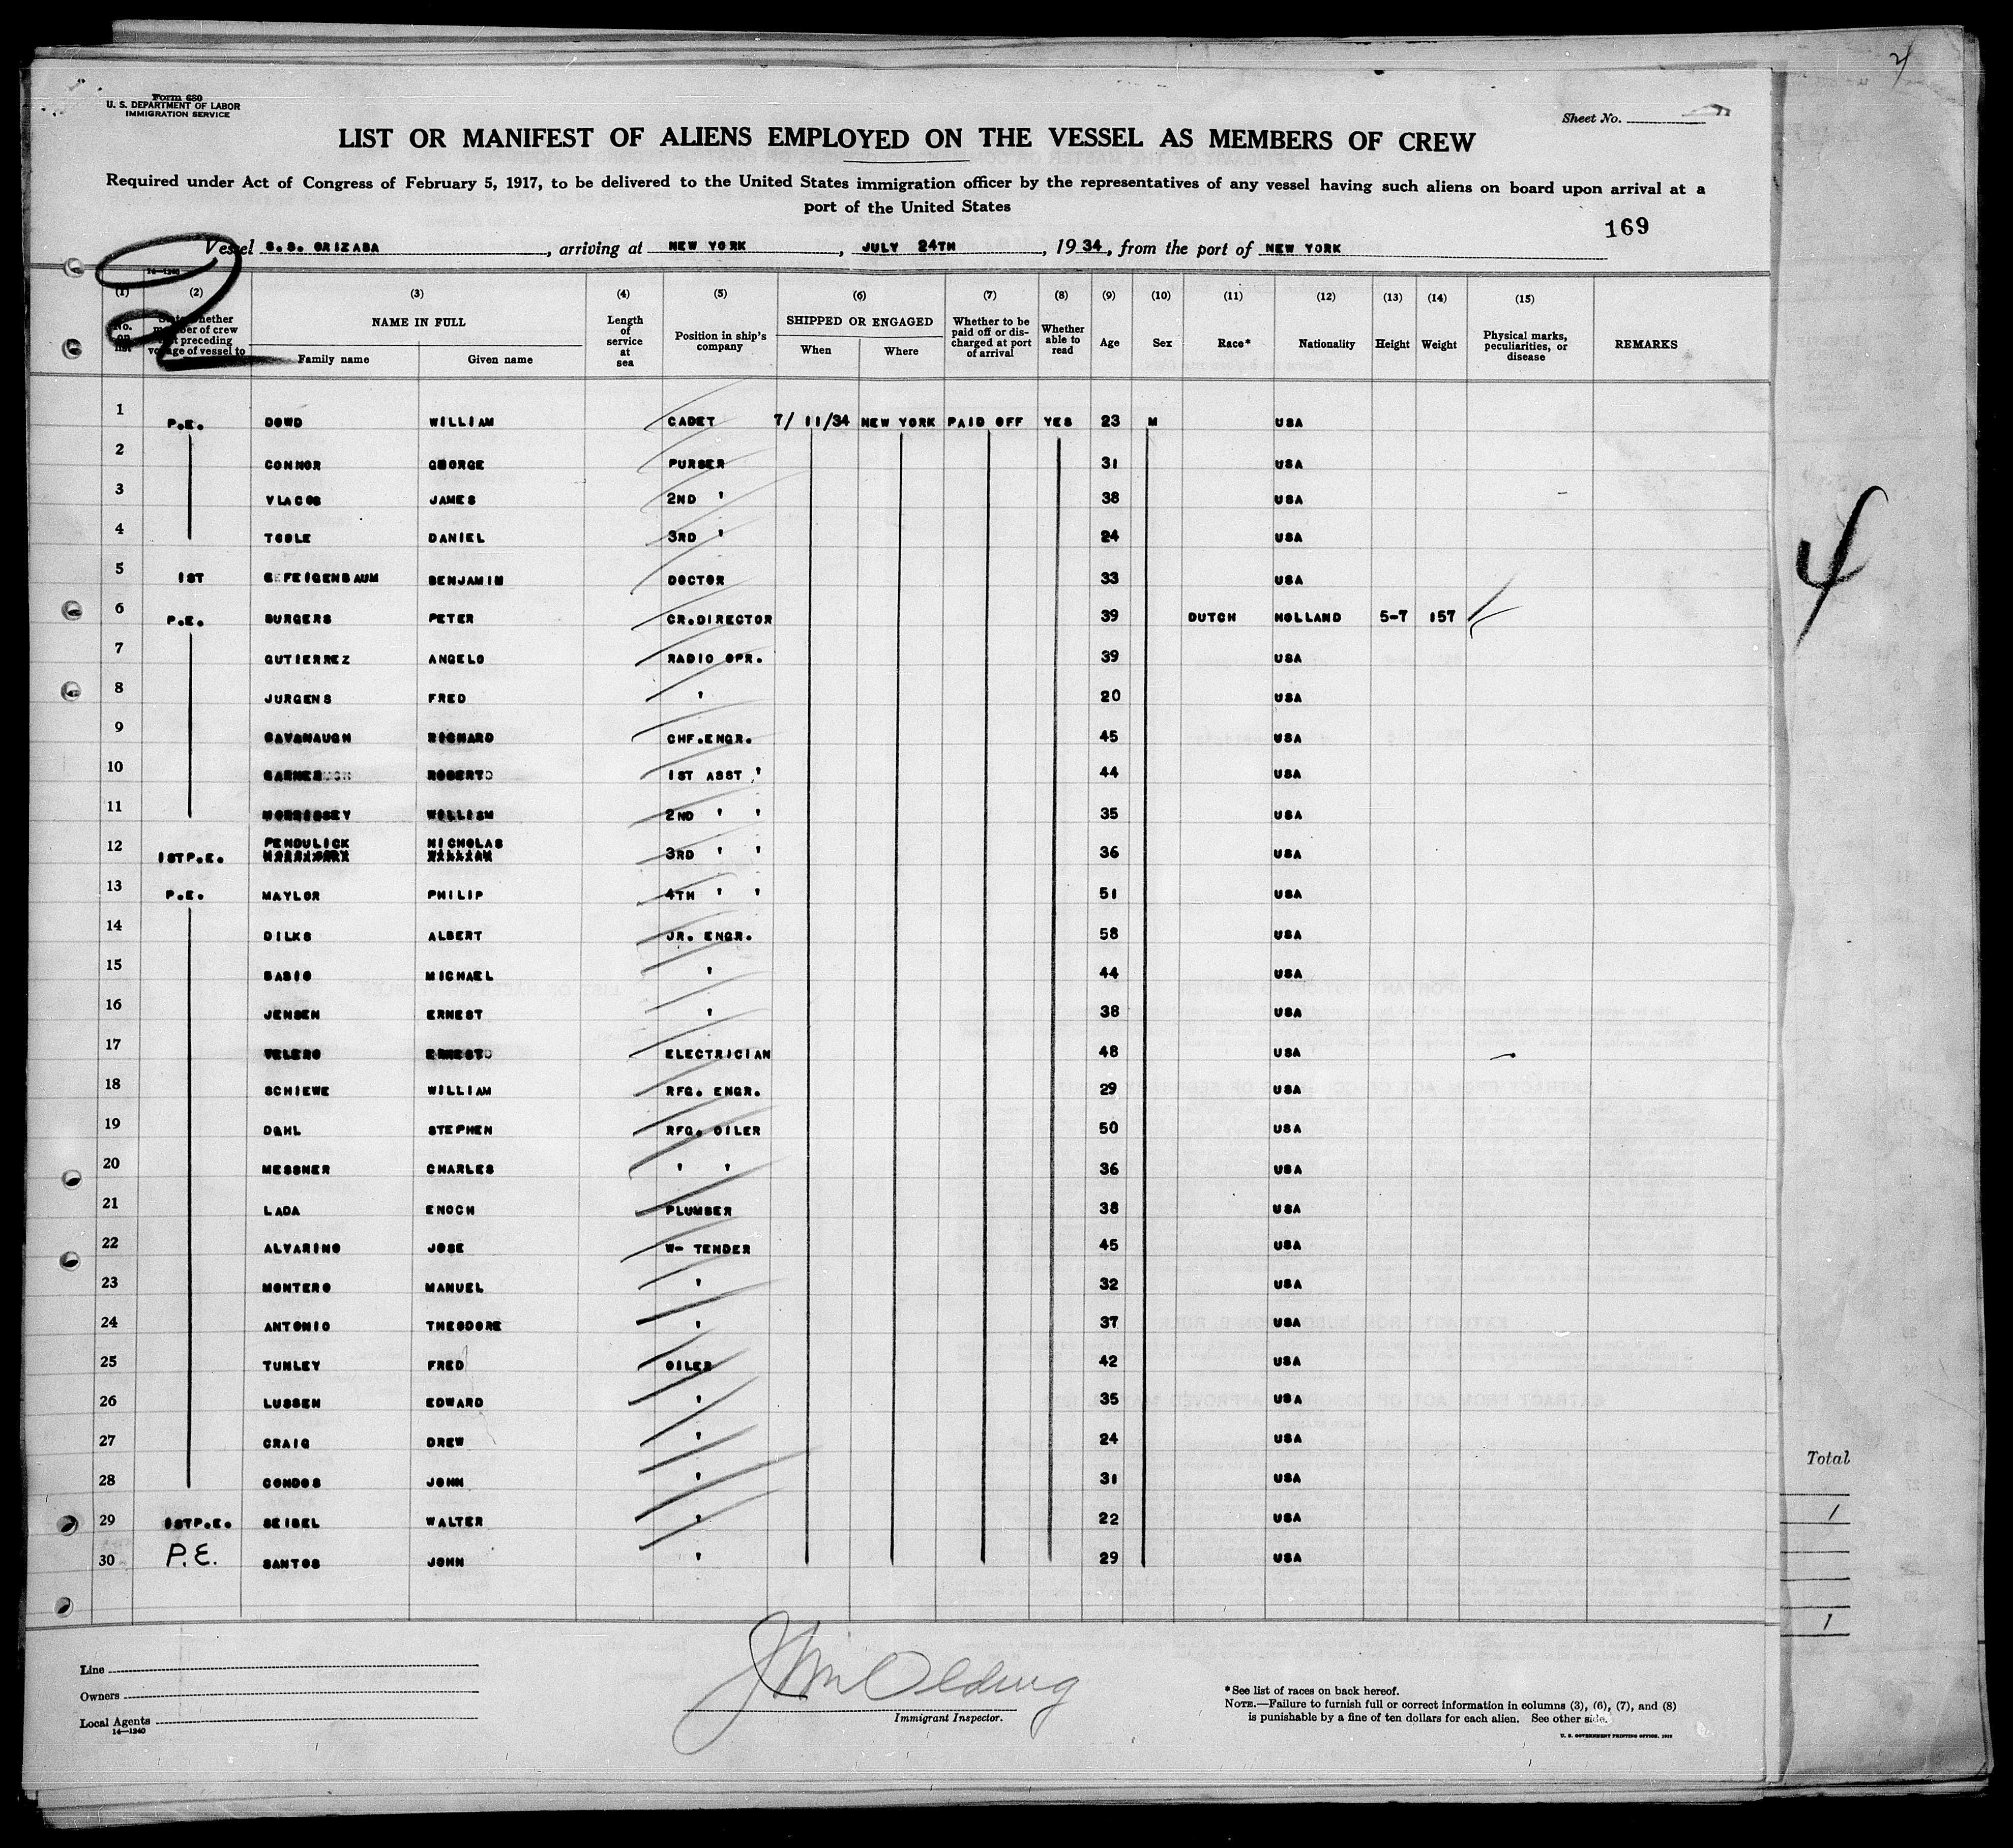 4
Form 680
U. S. DEPARTMENT OF LABOR
IMMIGRATION SERVICE
Sheet No.
LIST OR MANIFEST OF ALIENS EMPLOYED ON THE VESSEL AS MEMBERS OF CREW
Required under Act of Congress of February 5, 1917, to be delivered to the United States immigration officer by the representatives of any vessel having such aliens on board upon arrival at a
port of the United States
169
Vessel S.S. ORIZABA, arriving at NEW YORK, JULY 24TH, 1934, from the port of NEW YORK
14—1240
2
(1) (2) (3) (4) (5) (6) (7) (8) (9) (10) (11) (12) (13) (14) (15)
No. on list
State whether member of crew last preceding voyage of vessel to
NAME IN FULL
Family name Given name
Length of service at sea
Position in ship's company
SHIPPED OR ENGAGED
When Where
Whether to be paid off or discharged at port of arrival
Whether able to read
Age Sex Race* Nationality Height Weight
Physical marks, peculiarities, or disease
REMARKS
1 P.E. DOWD WILLIAM CADET 7/ 11/34 NEW YORK PAID OFF YES 23 M USA
2 CONNOR GEORGE PURSER 31 USA
3 VLACOS JAMES 2ND ' 38 USA
4 TOOLE DANIEL 3RD ' 24 USA
5 1ST FEIGENBAUM BENJAMIN DOCTOR 33 USA
6 P.E. BURGERS PETER CR.DIRECTOR 39 DUTCH HOLLAND 5-7 157
7 GUTIERREZ ANGELO RADIO OPR. 39 USA
8 JURGENS FRED ' 20 USA
9 CAVANAUGH RICHARD CHF.ENGR. 45 USA
10 GARNER ROBERT 1ST ASST ' 44 USA
11 MORRISSEY WILLIAM 2ND ' ' 35 USA
12 1STP.E. PENDULICK NICHOLAS 3RD ' ' 36 USA
13 P.E. MAYLOR PHILIP 4TH ' ' 51 USA
14 DILKS ALBERT JR. ENGR. 58 USA
15 SABIO MICHAEL ' 44 USA
16 JENSEN ERNEST ' 38 USA
17 VELERO ERNESTO ELECTRICIAN 48 USA
18 SCHIEWE WILLIAM RFG. ENGR. 29 USA
19 DAHL STEPHEN RFG. OILER 50 USA
20 MESSNER CHARLES ' ' 36 USA
21 LADA ENOCH PLUMBER 38 USA
22 ALVARINO JOSE W- TENDER 45 USA
23 MONTERO MANUEL ' 32 USA
24 ANTONIO THEODORE ' 37 USA
25 TUNLEY FRED OILER 42 USA
26 LUSSEN EDWARD ' 35 USA
27 CRAIG DREW ' 24 USA
28 CONDOS JOHN ' 31 USA
29 1STP.E. SEIBEL WALTER ' 22 USA
30 P.E. SANTOS JOHN ' 29 USA
4
Total
1
1
Line
Owners
Local Agents
14—1240
Immigrant Inspector.
*See list of races on back hereof.
NOTE.—Failure to furnish full or correct information in columns (3), (6), (7), and (8)
is punishable by a fine of ten dollars for each alien. See other side.
U. S. GOVERNMENT PRINTING OFFICE.